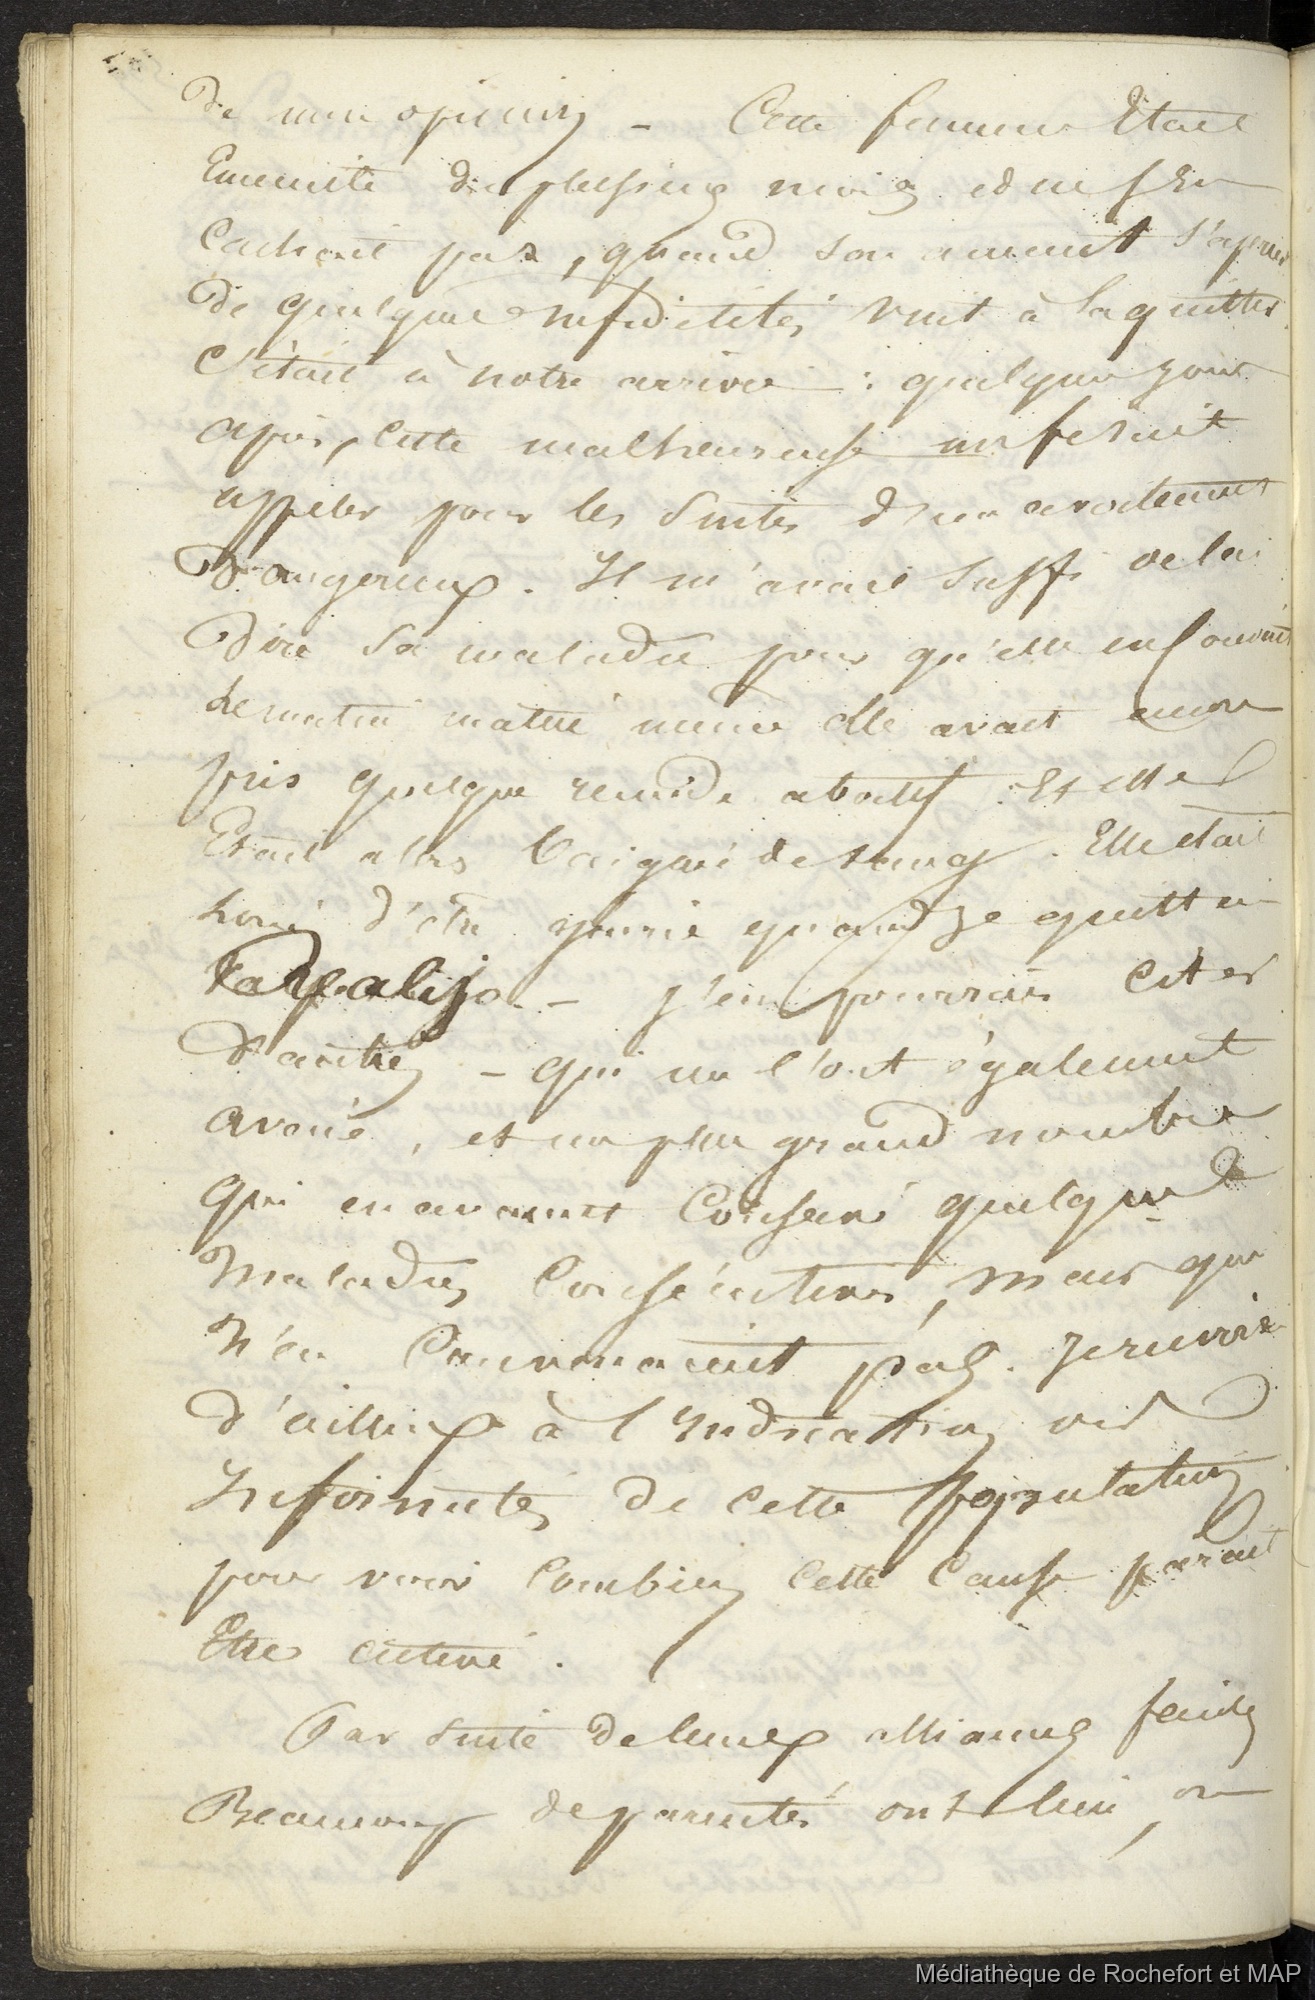 de mon opinion – Cette femme Etait
Enceinte de plusieurs mois et ne s'en
Cachait pas, quand son amant s'aperçut
de quelques infidélités vint à la quitter
C'était à notre arrivée : quelques jours
après, cette malheureuse me faisait
appeler pour les suites d'un avortement
Dangereux. Il m'avait suffi de lui
Dire sa maladie pour qu'elle en convint
Le matin même elle avait encore
pris quelque remède abortif. Et elle
Etait alors baignée de sang. Elle était
loin d'être guérie quand je quittai
– j'en pourrais citer
d'autres – qui me l'ont également
avoué, et un plus grand nombre
qui en avaient conservé quelques
Maladies Consécutives, mais qui
N'en Convenaient pas. Je renvoie
d'ailleurs à l'Indication des
Infirmités de cette population
pour voir Combien Cette Cause parait
Etre active.
Par suite de leurs alliances
Beaucoup de parentés ont lieu, on
Médiathèque de Rochefort et MAP